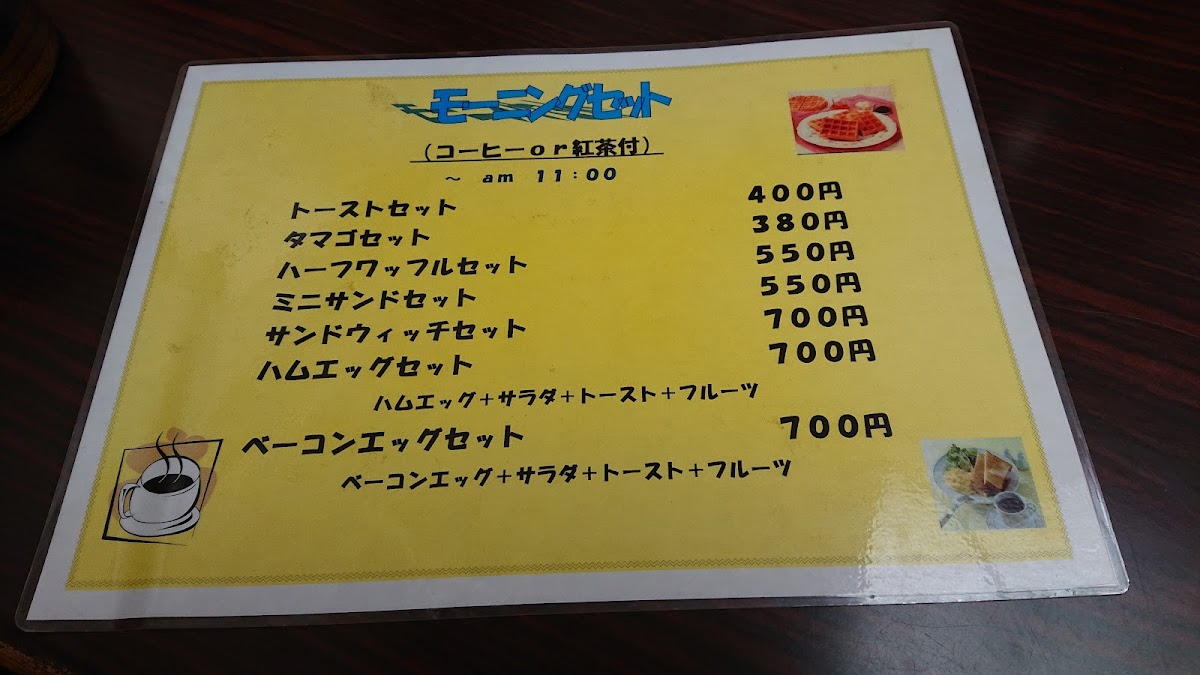 モーニングセット
（コーヒーｏｒ紅茶付）
～　ａｍ　１１：００
トーストセット　４００円
タマゴセット　３８０円
ハーフワッフルセット　５５０円
ミニサンドセット　５５０円
サンドウィッチセット　７００円
ハムエッグセット　７００円
ハムエッグ＋サラダ＋トースト＋フルーツ
ベーコンエッグセット　７００円
ベーコンエッグ＋サラダ＋トースト＋フルーツ